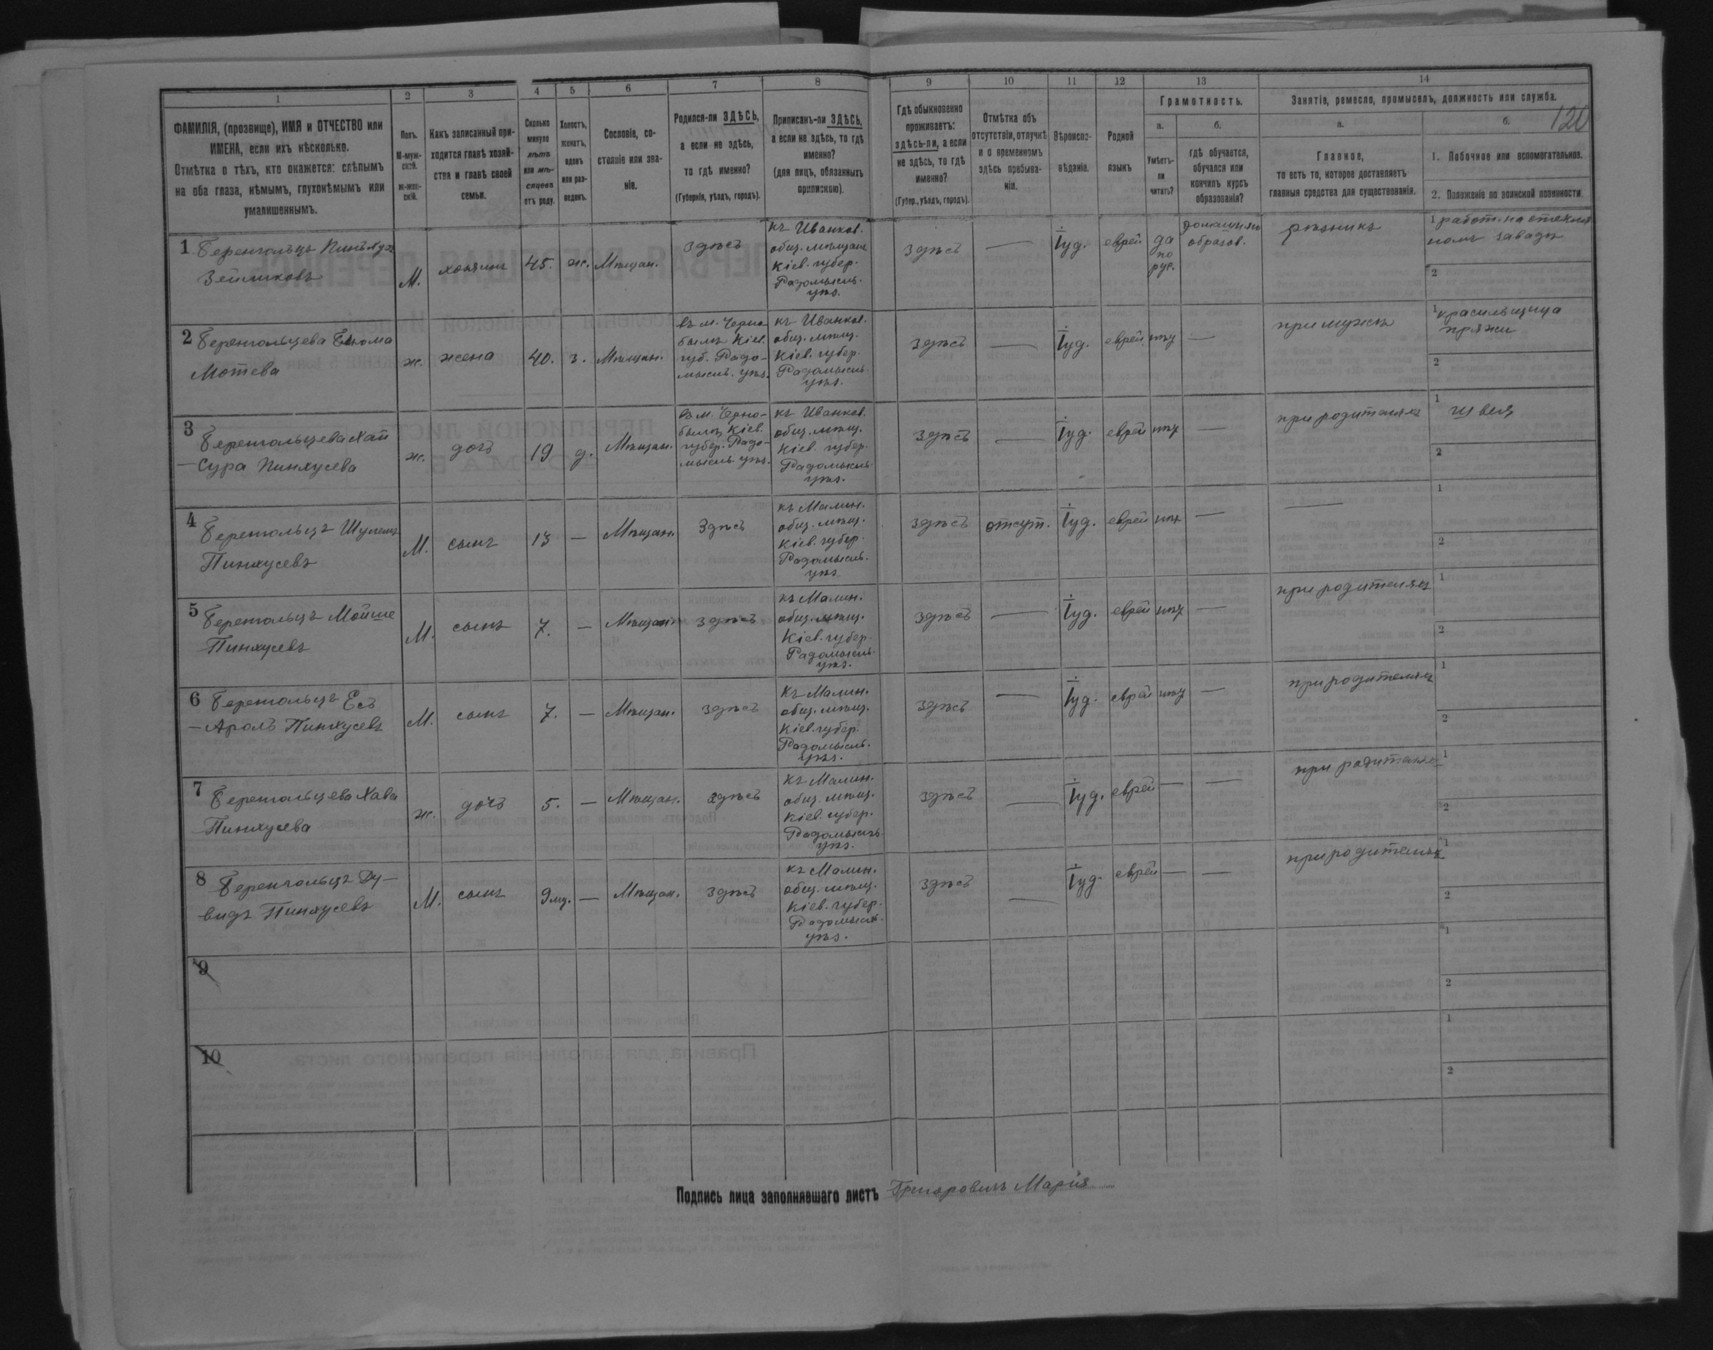 120
1 2 3 4 5 6 7 8 9 10 11 12 13 14
ФАМИЛІЯ, (прозвище), ИМЯ и ОТЧЕСТВО или
ИМЕНА, если ихъ нѣсколько.
Отмѣтка о тѣхъ, кто окажется: слѣпымъ
на оба глаза, нѣмымъ, глухонѣмымъ или
умалишеннымъ.
Полъ.
М-муж-
ской.
Ж-жен-
скій.
Какъ записанный при-
ходится главѣ хозяй-
ства и главѣ своей
семьи.
Сколько
минуло
лѣтъ
или мѣ-
сяцевъ
отъ роду.
Холостъ,
женатъ,
вдовъ
или раз-
веденъ.
Сословіе, со-
стояніе или зва-
ніе.
Родился-ли ЗДѢСЬ,
а если не здѣсь,
то гдѣ именно?
(Губернія, уѣздъ, городъ).
Приписанъ-ли ЗДѢСЬ,
а если не здѣсь, то гдѣ
именно?
(для лицъ, обязанныхъ
припискою).
Гдѣ обыкновенно
проживаетъ:
здѣсь-ли, а если
не здѣсь, то гдѣ
именно?
(Губер., уѣздъ, городъ).
Отмѣтка объ
отсутствіи, отлучкѣ
и о временномъ
здѣсь пребыва-
ніи.
Вѣроиспо-
вѣданіе.
Родной
языкъ
Грамотность.
а.
Умѣетъ-
ли
читать?
б.
гдѣ обучается,
обучался или
кончилъ курсъ
образованія?
Занятіе, ремесло, промыселъ, должность или служба.
а.
Главное,
то есть то, которое доставляетъ
главныя средства для существованія.
б.
1. Побочное или вспомогательное.
2. Положеніе по воинской повинности.
1 Беренгольцъ
Зейликовъ
М.
хозяинъ
45.
ж.
Мѣщан.
Здѣсь
къ Иванков.
общ. мѣщан
Кіев. губер.
Радомысль.
уѣз.
здѣсь
—
Іуд.
еврей
да
по
рус.
домашнее
образов.
рѣзникъ
1
2
2 Беренгольцева
Мотева
ж.
жена
40.
з.
Мѣщан.
въ м. Черно-
былѣ Кіев.
губ. Радо-
мысль. уѣз.
къ Иванков.
общ. мѣщ.
Кіев. губер.
Радомысль.
уѣз.
здѣсь
—
Іуд.
еврей
нѣт
—
при мужѣ
1 красильщица
пряжи
2
3 Беренгольцева Хая
— Сура Пинхусева
ж.
дочь
19
д.
Мѣщан.
въ м. Черно-
былѣ Кіев.
губер. Радо-
мысль уѣз.
къ Иванков.
общ. мѣщ.
Кіев. губер.
Радомысль.
уѣз.
здѣсь
—
Іуд.
еврей
нѣт
—
при родителях
1 швея
2
4 Беренгольцъ
Пинхусевъ
М.
сынъ
13
—
Мѣщан.
Здѣсь
къ Малин.
общ. мѣщ.
Кіев. губер.
Радомысль.
уѣз.
здѣсь
отсут.
Іуд.
еврей
нѣт
—
—
1
2
5 Беренгольцъ Мойше
Пинхусевъ
М.
сынъ
7.
—
Мѣщан.
здѣсь
къ Малин.
общ. мѣщ.
Кіев. губер.
Радомысль.
уѣз.
здѣсь
—
Іуд.
еврей
нѣт
—
при родителях
1
2
6 Беренгольцъ
— Аронъ Пинхусевъ
М.
сынъ
7.
—
Мѣщан.
здѣсь
къ Малин.
общ. мѣщ.
Кіев. губер.
Радомысль.
уѣз.
здѣсь
—
Іуд.
еврей
нѣт
—
при родителях
1
2
7 Беренгольцева Хава
Пинхусева
ж.
дочь
5.
—
Мѣщан.
здѣсь
къ Малин.
общ. мѣщ.
Кіев. губер.
Радомысль
уѣз.
здѣсь
—
Іуд.
еврей
—
—
при родителях
1
2
8 Беренгольцъ Ду-
видъ Пинхусевъ
М.
сынъ
9 мц.
—
Мѣщан.
здѣсь
къ Малин.
общ. мѣщ.
Кіев. губер.
Радомысль.
уѣз.
здѣсь
—
Іуд.
еврей
—
—
при родителях
1
2
9
1
2
10
1
2
Подпись лица заполнявшаго листъ Григоровичъ Марія